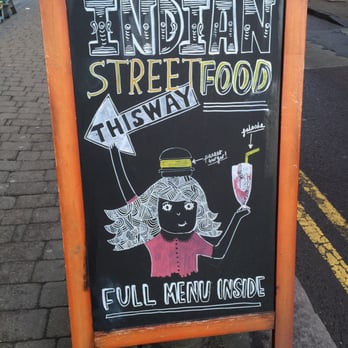 INDIAN
STREET FOOD
THIS WAY
paneer
burger!
falooda
FULL MENU INSIDE